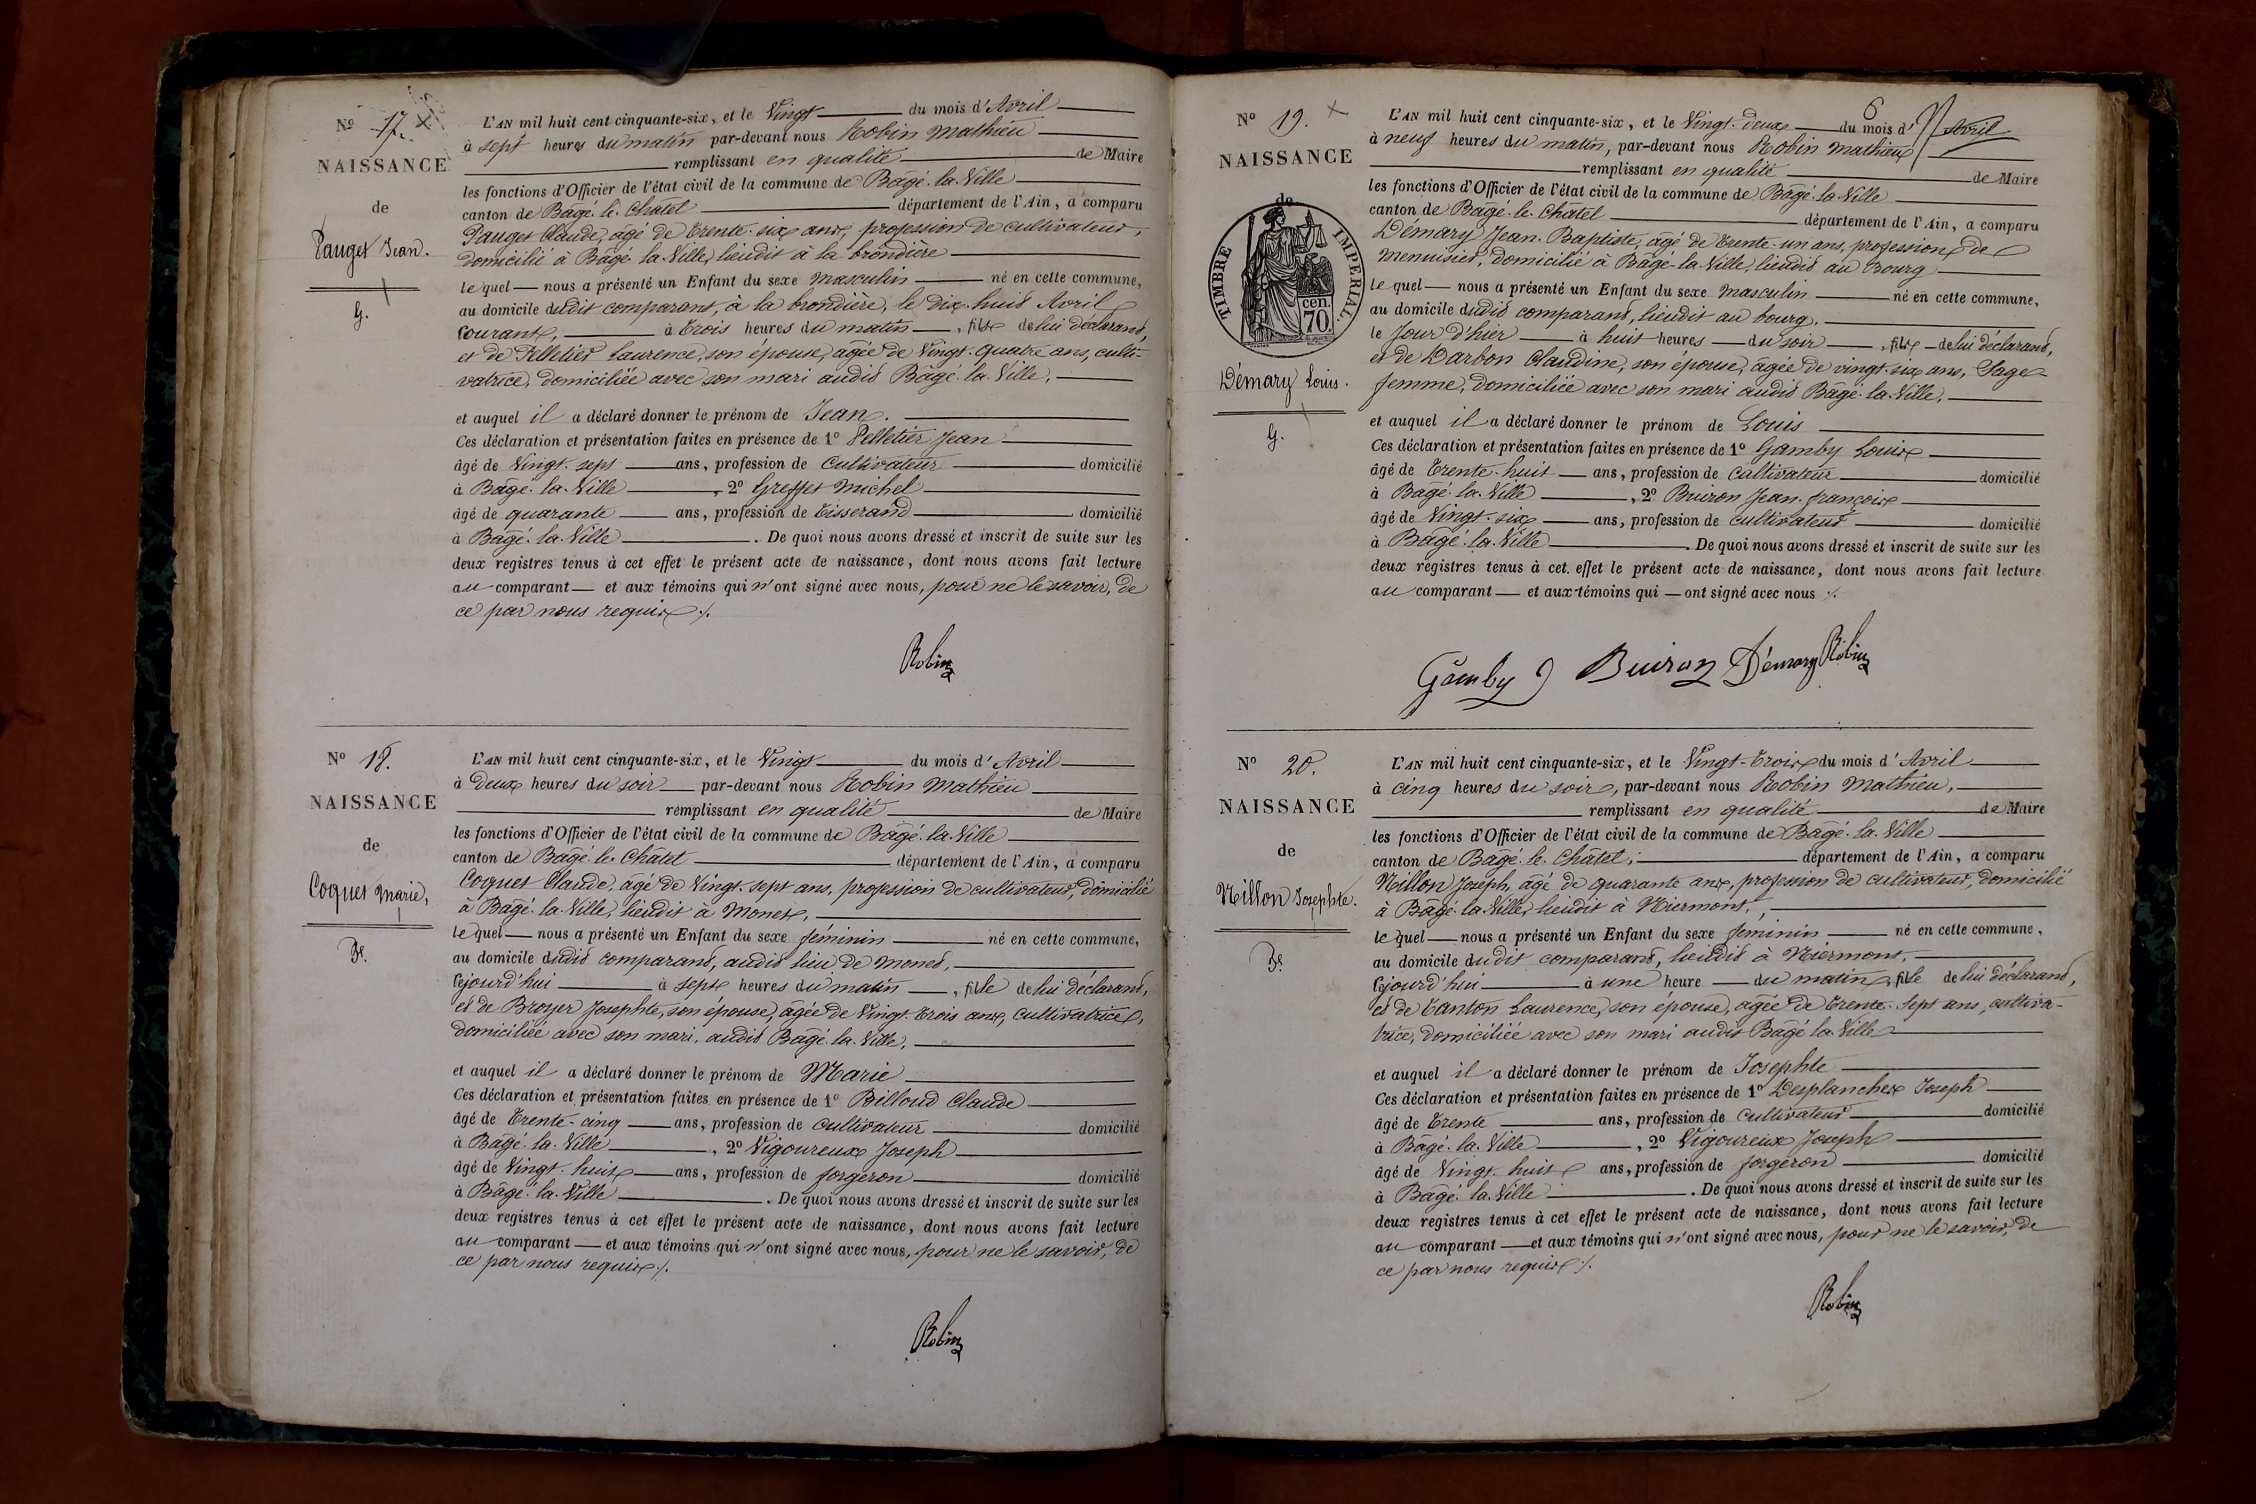 Nº 17.
NAISSANCE
de
Pauget Jean.
G.
L'AN mil huit cent cinquante-six, et le Vingt du mois d'Avril
à sept heures du matin par-devant nous Robin Mathieu
remplissant en qualité de Maire
les fonctions d'Officier de l'état civil de la commune de Bâgé-la-Ville
canton de Bâgé-le-Chatel département de l'Ain, a comparu
Pauget Claude, âgé de trente-six ans, profession de cultivateur,
domicilié à Bâgé-la-Ville, lieudit à la brondière
lequel nous a présenté un Enfant du sexe masculin né en cette commune,
au domicile dudit comparant, à la brondière, le dix-huit Avril
courant, à trois heures du matin, fils de lui déclarant,
et de Pelletier Laurence, son épouse, âgée de Vingt-quatre ans, culti-
vatrice, domiciliée avec son mari audit Bâgé-la-Ville.
et auquel il a déclaré donner le prénom de Jean.
Ces déclaration et présentation faites en présence de 1º Pelletier Jean
âgé de Vingt-sept ans, profession de cultivateur domicilié
à Bâgé-la-Ville, 2º Greffet Michel
âgé de quarante ans, profession de tisserand domicilié
à Bâgé-la-Ville. De quoi nous avons dressé et inscrit de suite sur les
deux registres tenus à cet effet le présent acte de naissance, dont nous avons fait lecture
au comparant et aux témoins qui n'ont signé avec nous, pour ne le savoir, de
ce par nous requis ./.
Robin
Nº 18.
NAISSANCE
de
Coquet Marie,
F.
L'AN mil huit cent cinquante-six, et le Vingt du mois d'Avril
à Deux heures du soir par-devant nous Robin Mathieu
remplissant en qualité de Maire
les fonctions d'Officier de l'état civil de la commune de Bâgé-la-Ville
canton de Bâgé-le-Châtel département de l'Ain, a comparu
Coquet Claude, âgé de Vingt-sept ans, profession de cultivateur, domicilié
à Bâgé-la-Ville, lieudit à Monet,
lequel nous a présenté un Enfant du sexe féminin né en cette commune,
au domicile dudit comparant, audit lieu de Monet,
cejourd'hui à sept heures du matin, fille de lui déclarant,
et de Broyer Josephte, son épouse, âgée de Vingt-trois ans, cultivatrice,
domiciliée avec son mari, audit Bâgé-la-Ville,
et auquel il a déclaré donner le prénom de Marie
Ces déclaration et présentation faites en présence de 1º Billoud Claude
âgé de trente-cinq ans, profession de cultivateur domicilié
à Bâgé-la-Ville, 2º Vigoureux Joseph
âgé de Vingt-huit ans, profession de forgeron domicilié
à Bâgé-la-Ville. De quoi nous avons dressé et inscrit de suite sur les
deux registres tenus à cet effet le présent acte de naissance, dont nous avons fait lecture
au comparant et aux témoins qui n'ont signé avec nous, pour ne le savoir, de
ce par nous requis ./.
Robin
6
Nº 19.
NAISSANCE
de
TIMBRE IMPERIAL.
cen.
70
Démary Louis.
G.
L'AN mil huit cent cinquante-six, et le Vingt-deux du mois d'Avril
à neuf heures du matin, par-devant nous Robin Mathieu
remplissant en qualité de Maire
les fonctions d'Officier de l'état civil de la commune de Bâgé-la-Ville
canton de Bâgé-le-Châtel département de l'Ain, a comparu
Démary Jean-Baptiste, âgé de trente-un ans, profession de
menuisier, domicilié à Bâgé-la-Ville, lieudit au Bourg
lequel nous a présenté un Enfant du sexe masculin né en cette commune,
au domicile dudit comparant, lieudit au bourg.
le jour d'hier à huit heures du soir, fils de lui déclarant,
et de Darbon Claudine, son épouse, âgée de vingt-six ans, Sage-
femme, domiciliée avec son mari audit Bâgé-la-Ville,
et auquel il a déclaré donner le prénom de Louis
Ces déclaration et présentation faites en présence de 1º Gamby Louis
âgé de trente-huit ans, profession de cultivateur domicilié
à Bâgé-la-Ville, 2º Buiron Jean-françois
âgé de Vingt-six ans, profession de cultivateur domicilié
à Bâgé-la-Ville. De quoi nous avons dressé et inscrit de suite sur les
deux registres tenus à cet effet le présent acte de naissance, dont nous avons fait lecture
au comparant et aux témoins qui ont signé avec nous ./.
Gamby Buiron Démary Robin
Nº 20.
NAISSANCE
de
Nillon Josephte.
F.
L'AN mil huit cent cinquante-six, et le Vingt-trois du mois d'Avril
à cinq heures du soir, par-devant nous Robin Mathieu,
remplissant en qualité de Maire
les fonctions d'Officier de l'état civil de la commune de Bâgé-la-Ville
canton de Bâgé-le-Châtel, département de l'Ain, a comparu
Nillon Joseph, âgé de quarante ans, profession de cultivateur, domicilié
à Bâgé-la-Ville, lieudit à Niermont,
lequel nous a présenté un Enfant du sexe féminin né en cette commune,
au domicile dudit comparant, lieudit à Niermont,
cejourd'hui à une heure du matin, fille de lui déclarant,
et de Tanton Laurence, son épouse, âgée de trente-sept ans, cultiva-
trice, domiciliée avec son mari audit Bâgé-la-Ville
et auquel il a déclaré donner le prénom de Josephte
Ces déclaration et présentation faites en présence de 1º Desplanches Joseph
âgé de trente ans, profession de cultivateur domicilié
à Bâgé-la-Ville, 2º Vigoureux Joseph
âgé de Vingt-huit ans, profession de forgeron domicilié
à Bâgé-la-Ville. De quoi nous avons dressé et inscrit de suite sur les
deux registres tenus à cet effet le présent acte de naissance, dont nous avons fait lecture
au comparant et aux témoins qui n'ont signé avec nous, pour ne le savoir, de
ce par nous requis ./.
Robin